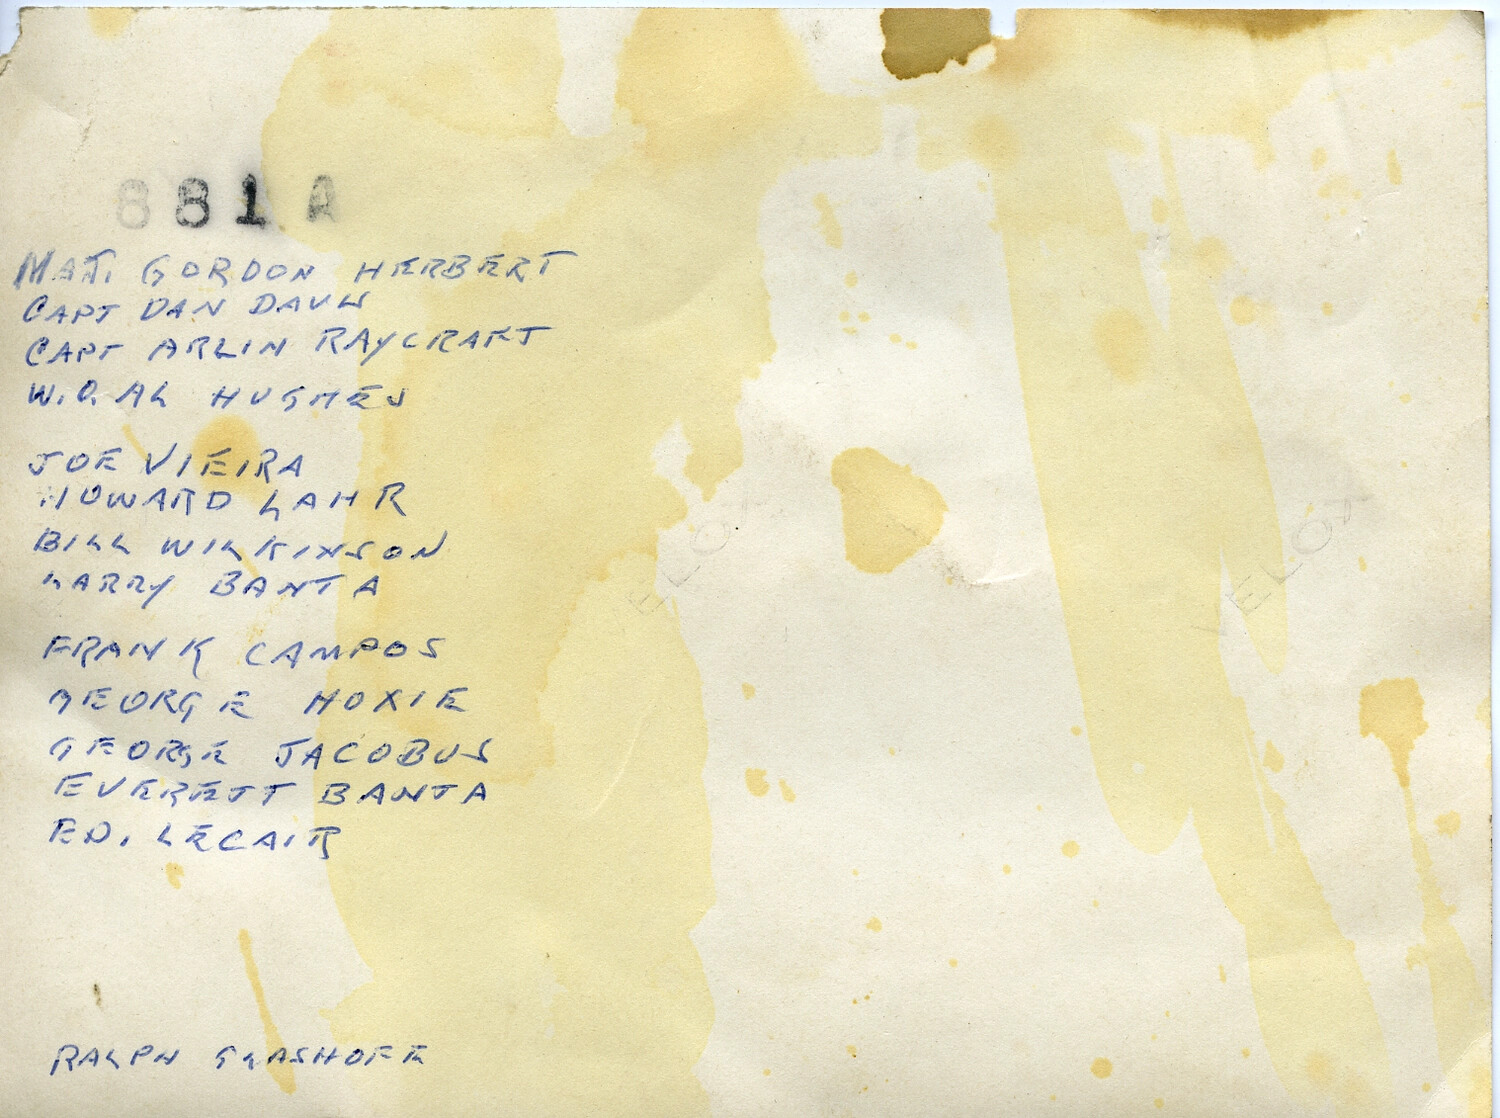 881A
MAJ. GORDON HERBERT
CAPT DAN DAVIS
CAPT ARLIN RAYCRAFT
W.O. AL HUGHES
JOE VIEIRA
HOWARD LAHR
BILL WILKINSON
LARRY BANTA
FRANK CAMPOS
GEORGE HOXIE
GEORGE JACOBUS
EVERETT BANTA
ED. LECAIR
VELOX
VELOX
RALPH GLASHOFF